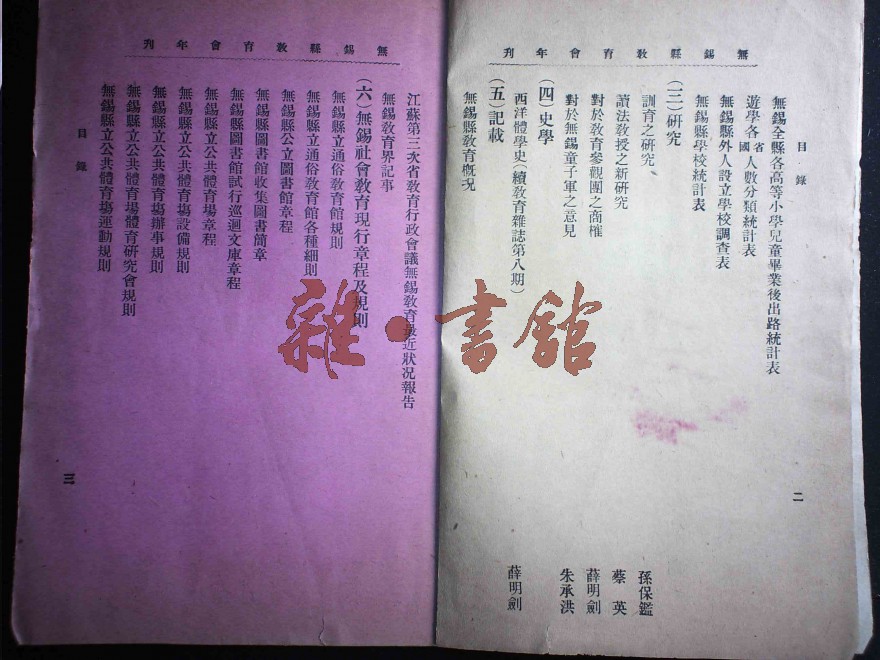 無錫縣敎育會年刊
目錄
無錫全縣各高等小學兒童畢業後出路統計表
遊學各省國人數分類統計表
無錫縣外人設立學校調查表
無錫縣學校統計表
(三)研究
訓育之硏究 孫保鑑
讀法敎授之新硏究 蔡英
對於敎育參觀團之商榷 薛明劍
對於無錫童子軍之意見 朱承洪
(四)史學
西洋體學史(續敎育雜誌第八期) 薛明劍
(五)記載
無錫縣敎育概況
二
無錫縣敎育會年刊
江蘇第三次省敎育行政會議無錫敎育最近狀况報告
無錫敎育界記事
(六)無錫社會敎育現行章程及規則
無錫縣立通俗敎育館規則
無錫縣立通俗敎育館各種細則
無錫縣公立圖書館章程
無錫縣圖書館收集圖書簡章
無錫縣圖書館試行巡迴文庫章程
無錫縣立公共體育場章程
無錫縣立公共體育塲設備規則
無錫縣立公共體育塲辦事規則
無錫縣立公共體育場體育硏究會規則
無錫縣立公共體育塲運動規則
目錄
三
雜·書館